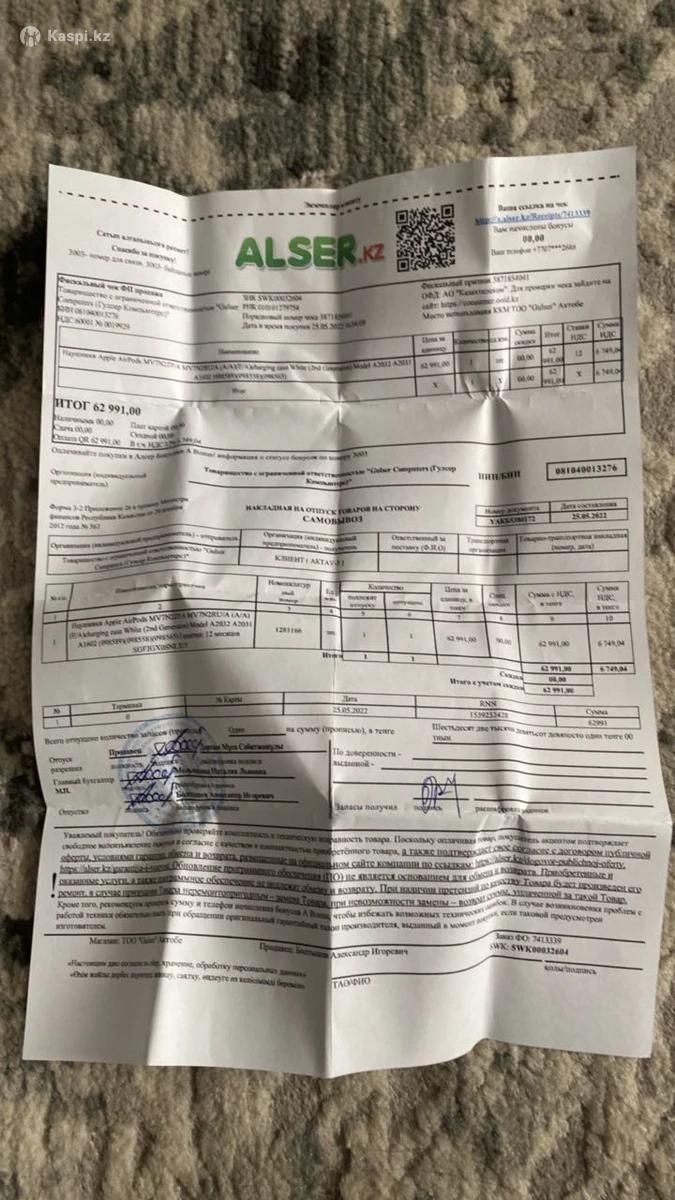 Kaspi.kz
Экземпляр клиенту
Сатып алғаныңызға рахмет!
Спасибо за покупку!
3003- номер для связи. 3003- байланыс нөмірі
ALSER.KZ
Ваша ссылка на чек
http://s.alser.kz/Receipts/7413339
Вам начислены бонусы
00,00
Ваш телефон +7707***2688
Фискальный чек ФП продажа
Товарищество с ограниченной ответственностью "Gulser
Computers (Гулсер Компьютерс)"
БИН 081040013276
НДС 60001 № 0019929
ЗНК SWK00032604
РНК 010101279754
Порядковый номер чека 3871854041
Дата и время покупки 25.05.2022
Фискальный признак 3871854041
ОФД: АО "Казахтелеком". Для проверки чека зайдите на
сайт: https://consumer.oofd.kz
Место использования ККМ ТОО "Gulser" Актобе
Наименование Цена за единицу Количество Сумма скидки Итог Ставка НДС Сумма НДС
Наушники Apple AirPods MV7N2ZP/A MV7N2RU/A (A/A)(E/A)charging case White (2nd Generation) Model A2032 A2031
A1602 (098589)(098558)(098565) 62 991,00 1 шт 00,00 62 991,00 12 6 749,04
Итог X 1 X 00,00 62 991,00 X 6 749,04
ИТОГ 62 991,00
Наличными 00,00 Плат картой 00,00
Сдача 00,00 Скидкой 00,00
Оплата QR 62 991,00 В т.ч. НДС 12% 6 749,04
Оплачивайте покупки в Алсер бонусами А Bonus! информация о статусе бонусов по номеру 3003
Организация (индивидуальный
предприниматель)
Товарищество с ограниченной ответственностью "Gulser Computers (Гулсер
Компьютерс)"
ИИН/БИН 081040013276
Форма З-2 Приложение 26 к приказу Министра
финансов Республики Казахстан от 20 декабря
2012 года № 562
НАКЛАДНАЯ НА ОТПУСК ТОВАРОВ НА СТОРОНУ
САМОВЫВОЗ
Номер документа Дата составления
25.05.2022
Организация (индивидуальный предприниматель) - отправитель Организация (индивидуальный предприниматель) - получатель Ответственный за поставку (Ф.И.О) Транспортная организация Товарно-транспортная накладная (номер, дата)
Товарищество с ограниченной ответственностью "Gulser
Computers (Гулсер Компьютерс)" КЛИЕНТ ( АКТАУ-3 )
№ п/п Наименование, характеристика Номенклатурный номер Ед. изм Количество подлежит отпуску отпущено Цена за единицу, в тенге Сумма скидки Сумма с НДС, в тенге Сумма НДС, в тенге
1 2 3 4 5 6 7 8 9 10
1 Наушники Apple AirPods MV7N2ZP/A MV7N2RU/A (A/A)
(E/A)charging case White (2nd Generation) Model A2032 A2031
A1602 (098589)(098558)(098565) гарантия: 12 месяцев
1281166 шт 1 1 62 991,00 00,00 62 991,00 6 749,04
Итого 1 1 62 991,00 6 749,04
Скидка 00,00
Итого с учетом скидки 62 991,00
№ Терминал № Карты Дата RNN Сумма
1 0 25.05.2022 1539232428 62991
Всего отпущено количество запасов (прописью) Один на сумму (прописью), в тенге Шестьдесят две тысячи девятьсот девяносто один тенге 00
тиын
Отпуск
разрешил Продавец Муса Сабитжанулы
должность подпись расшифровка подписи
Главный бухгалтер Мельникова Наталия Львовна
М.П.
Отпустил Болтышев Александр Игоревич
По доверенности -
выданной -
Запасы получил подпись расшифровка подписи
Уважаемый покупатель! Обязательно проверяйте комплектность и техническую исправность товара. Поскольку оплачивая товар, покупатель акцептом подтверждает
свободное волеизъявление покупки и согласие с качеством и комплектностью приобретённого товара, а также подтверждает свое согласие с договором публичной
оферты, условиями гарантии, обмена и возврата, размещенные на официальном сайте компании по ссылкам: https://alser.kz/dogovor-publichnoj-oferty,
Обновление программного обеспечения (ПО) не является основанием для обмена и возврата. Приобретенные и
оказанные услуги, а также программное обеспечение не подлежат обмену и возврату. При наличии претензий по качеству Товара будет произведен его
ремонт, в случае признания Товара неремонтопригодным – замена Товара, при невозможности замены – возврат суммы, уплаченной за такой Товар.
Кроме того, рекомендуем проверять сумму и телефон начисления бонусов А Bonus, чтобы избежать возможных технических ошибок. В случае возникновения проблем с
работой техники обязательно при обращении оригинальный гарантийный талон производителя, выданный в момент покупки, если таковой предусмотрен
изготовителем.
Магазин: ТОО "Gulser" Актобе
Продавец: Болтышев Александр Игоревич
Заказ ФО: 7413339
SWK: SWK00032604
«Настоящим даю согласие на сбор, хранение, обработку персональных данных»
ТАО/ФИО
қолы/подпись